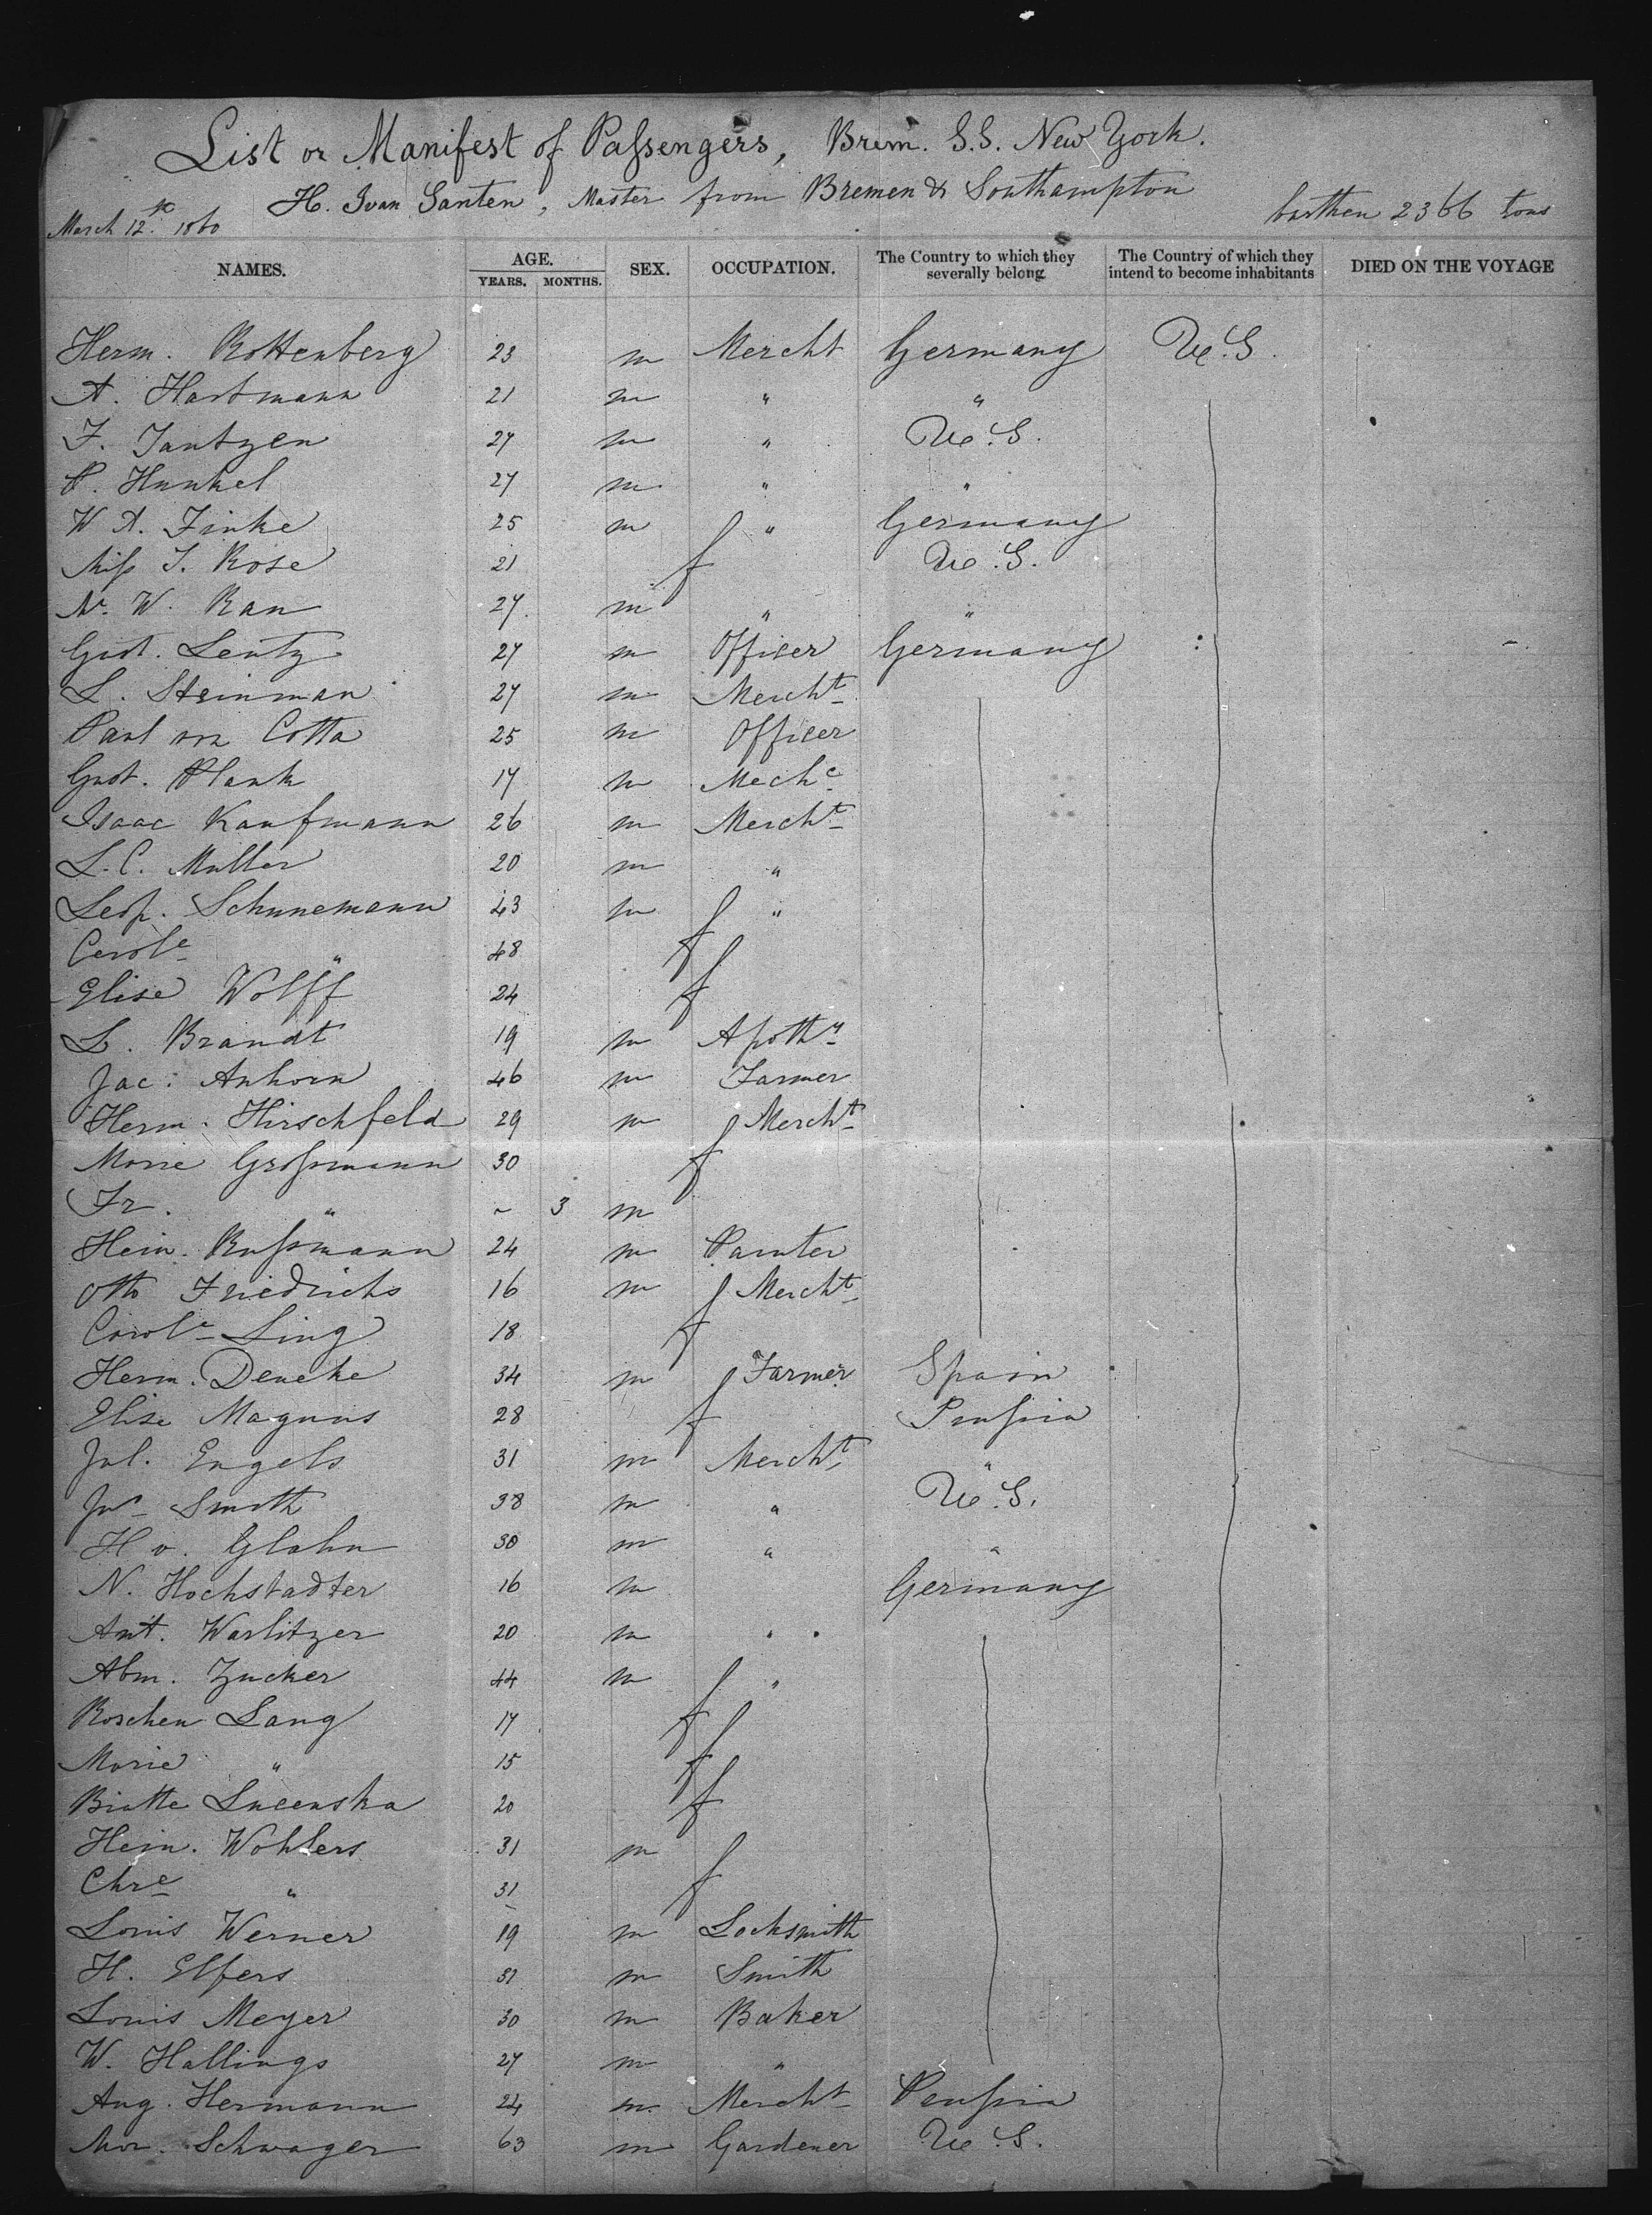 List or Manifest of Passengers, Brem. S.S. New York.
H. J van Santen, Master from Bremen & Southampton
March 12th 1860 burthen 2366 tons
NAMES. AGE. YEARS. MONTHS. SEX. OCCUPATION. The Country to which they severally belong The Country of which they intend to become inhabitants DIED ON THE VOYAGE
Herm. Rottenberg 23 m Mercht Germany U.S.
A. Hartmann 21 m " "
F. Jantzen 27 m " U.S.
P. Hunkel 27 m " "
W A. Finke 25 m " Germany
Miss J. Rose 21 f U.S.
W. Rau 27 m " "
Gust. Lentz 27 m Officer Germany
L. Steinman 27 m Mercht
Paul von Cotta 25 m Officer
Gust. Plank 17 m Mechc
Isaac Kaufmann 26 m Mercht
L. C. Muller 20 m "
Leop. Schunemann 43 m "
Carole " 48 f
Elise Wolff 24 f
L. Brandt 19 m Apothy
Jac: Anhorn 46 m Farmer
Herm. Hirschfeld 29 m Mercht
Marie Grossmann 30 f
Fr. " ~ 3 m
Hein. Russmann 24 m Painter
Otto Friedrichs 16 m Mercht
Carole Ling 18 f
Herm. Deneke 34 m Farmer Spain
Elise Magnus 28 f Prussia
Jul. Engels 31 m Mercht "
Jno Smith 38 m " U.S.
H v. Glahn 30 m " "
N. Hochstadter 16 m Germany
Ant. Warlitzer 20 m "
Abm. Zucker 44 m "
Roschen Lang 17 f
Marie " 15 f
Lucenska 20 f
Hein. Wohlers 31 m
Chre " 31 f
Louis Werner 19 m Locksmith
H. Elfers 31 m Smith
Louis Meyer 30 m Baker
W. Hallings 27 m "
Aug. Hermann 24 m. Mercht Prussia
Mor. Schwager 63 m Gardener U.S.